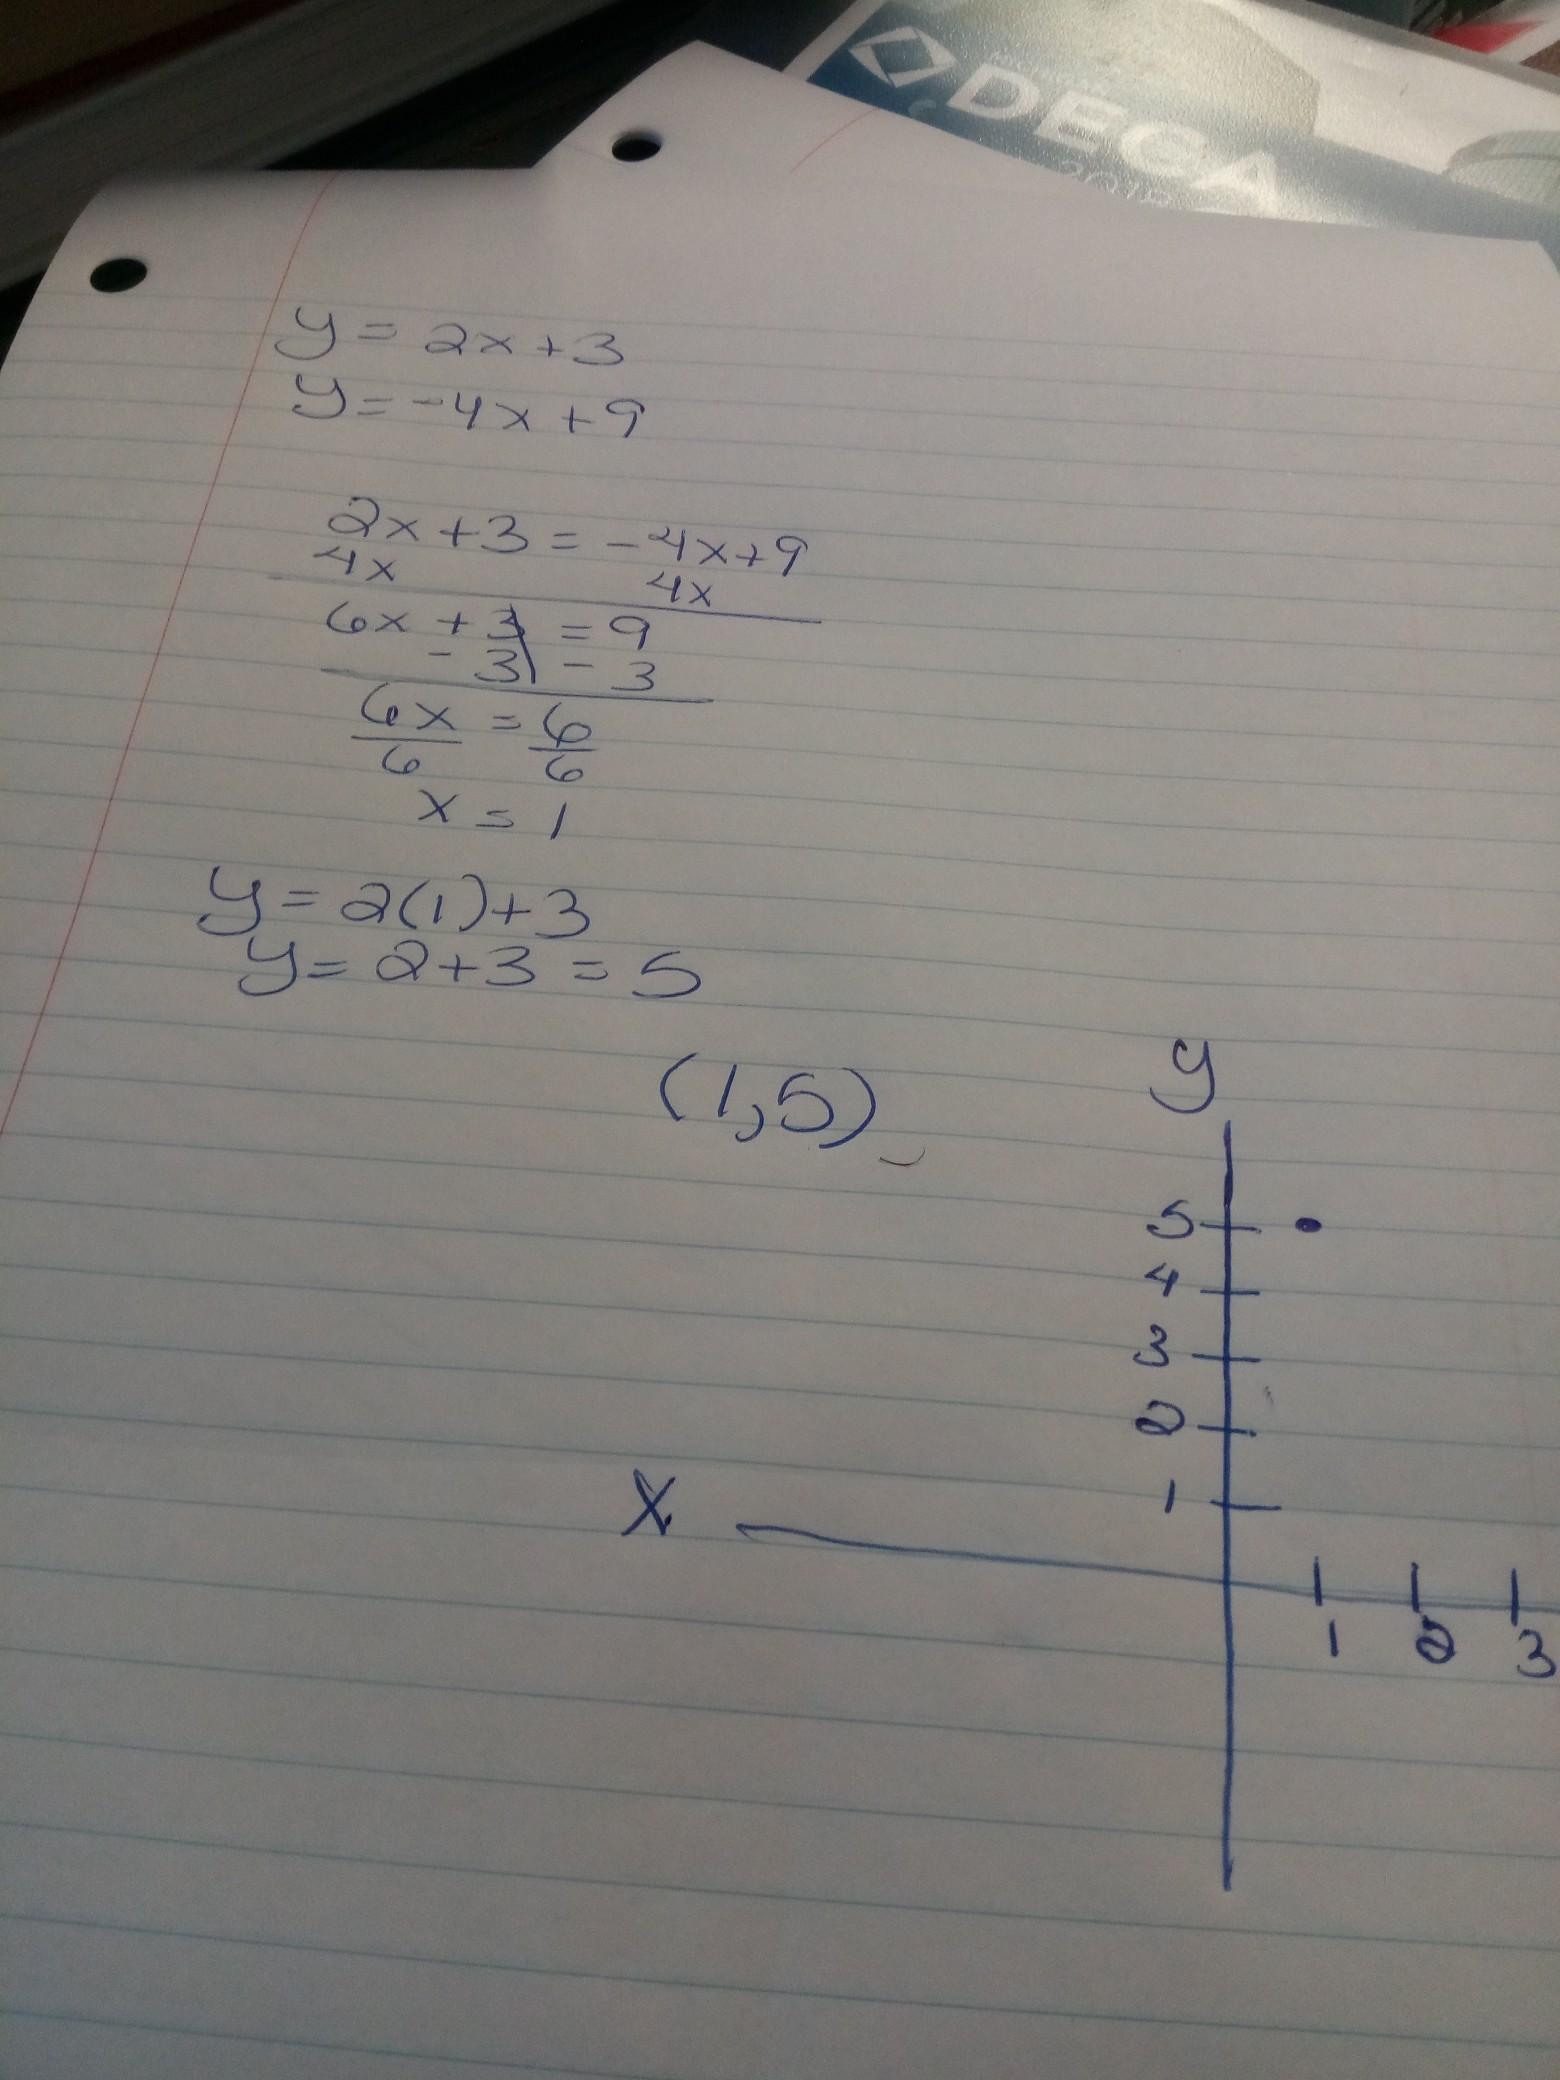 DECA
y = 2x + 3
y = -4x + 9
2x + 3 = -4x + 9
4x 4x
6x + 3 = 9
- 3 - 3
6x = 6
6 6
x = 1
y = 2(1) + 3
y = 2 + 3 = 5
(1,5)
y
5
4
3
2
1
X
1 2 3